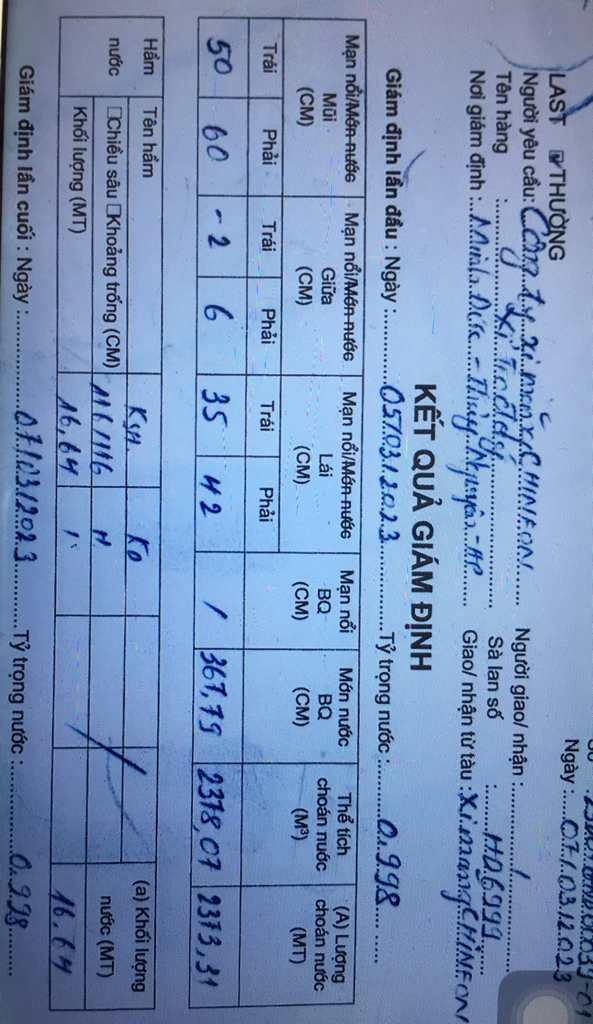 Ngày :....07/03/2023
LAST ☑THƯỜNG
Người yêu cầu: Công ty xi măng CHINFON......
Người giao/ nhận :............/
Tên hàng : Xỉ
Sà lan số : .... HD6999
Nơi giám định : Minh Đức - Thủy Nguyên - HP
Giao/ nhận từ tàu : Xi măng CHINFON
KẾT QUẢ GIÁM ĐỊNH
Giám định lần đầu : Ngày :............05/03/2023............Tỷ trọng nước :........0.998............
Mạn nổi/Món nước Mạn nổi/Món nước Mạn nổi/Món nước Mạn nổi Món nước Thể tích (A) Lượng
Mũi Giữa Lái BQ BQ choán nước choán nước
(CM) (CM) (CM) (CM) (CM) (M³) (MT)
Trái Phải Trái Phải Trái Phải
50 60 -2 6 35 42 / 367,79 2378,07 2373,31
Hầm nước
Tên hầm Kýn Ko (a) Khối lượng nước (MT)
☐Chiều sâu ☐Khoảng trống (CM) 116/116 H
Khối lượng (MT) 16,64 1 16.64
Giám định lần cuối : Ngày :............07/03/2023............Tỷ trọng nước :............0.998............